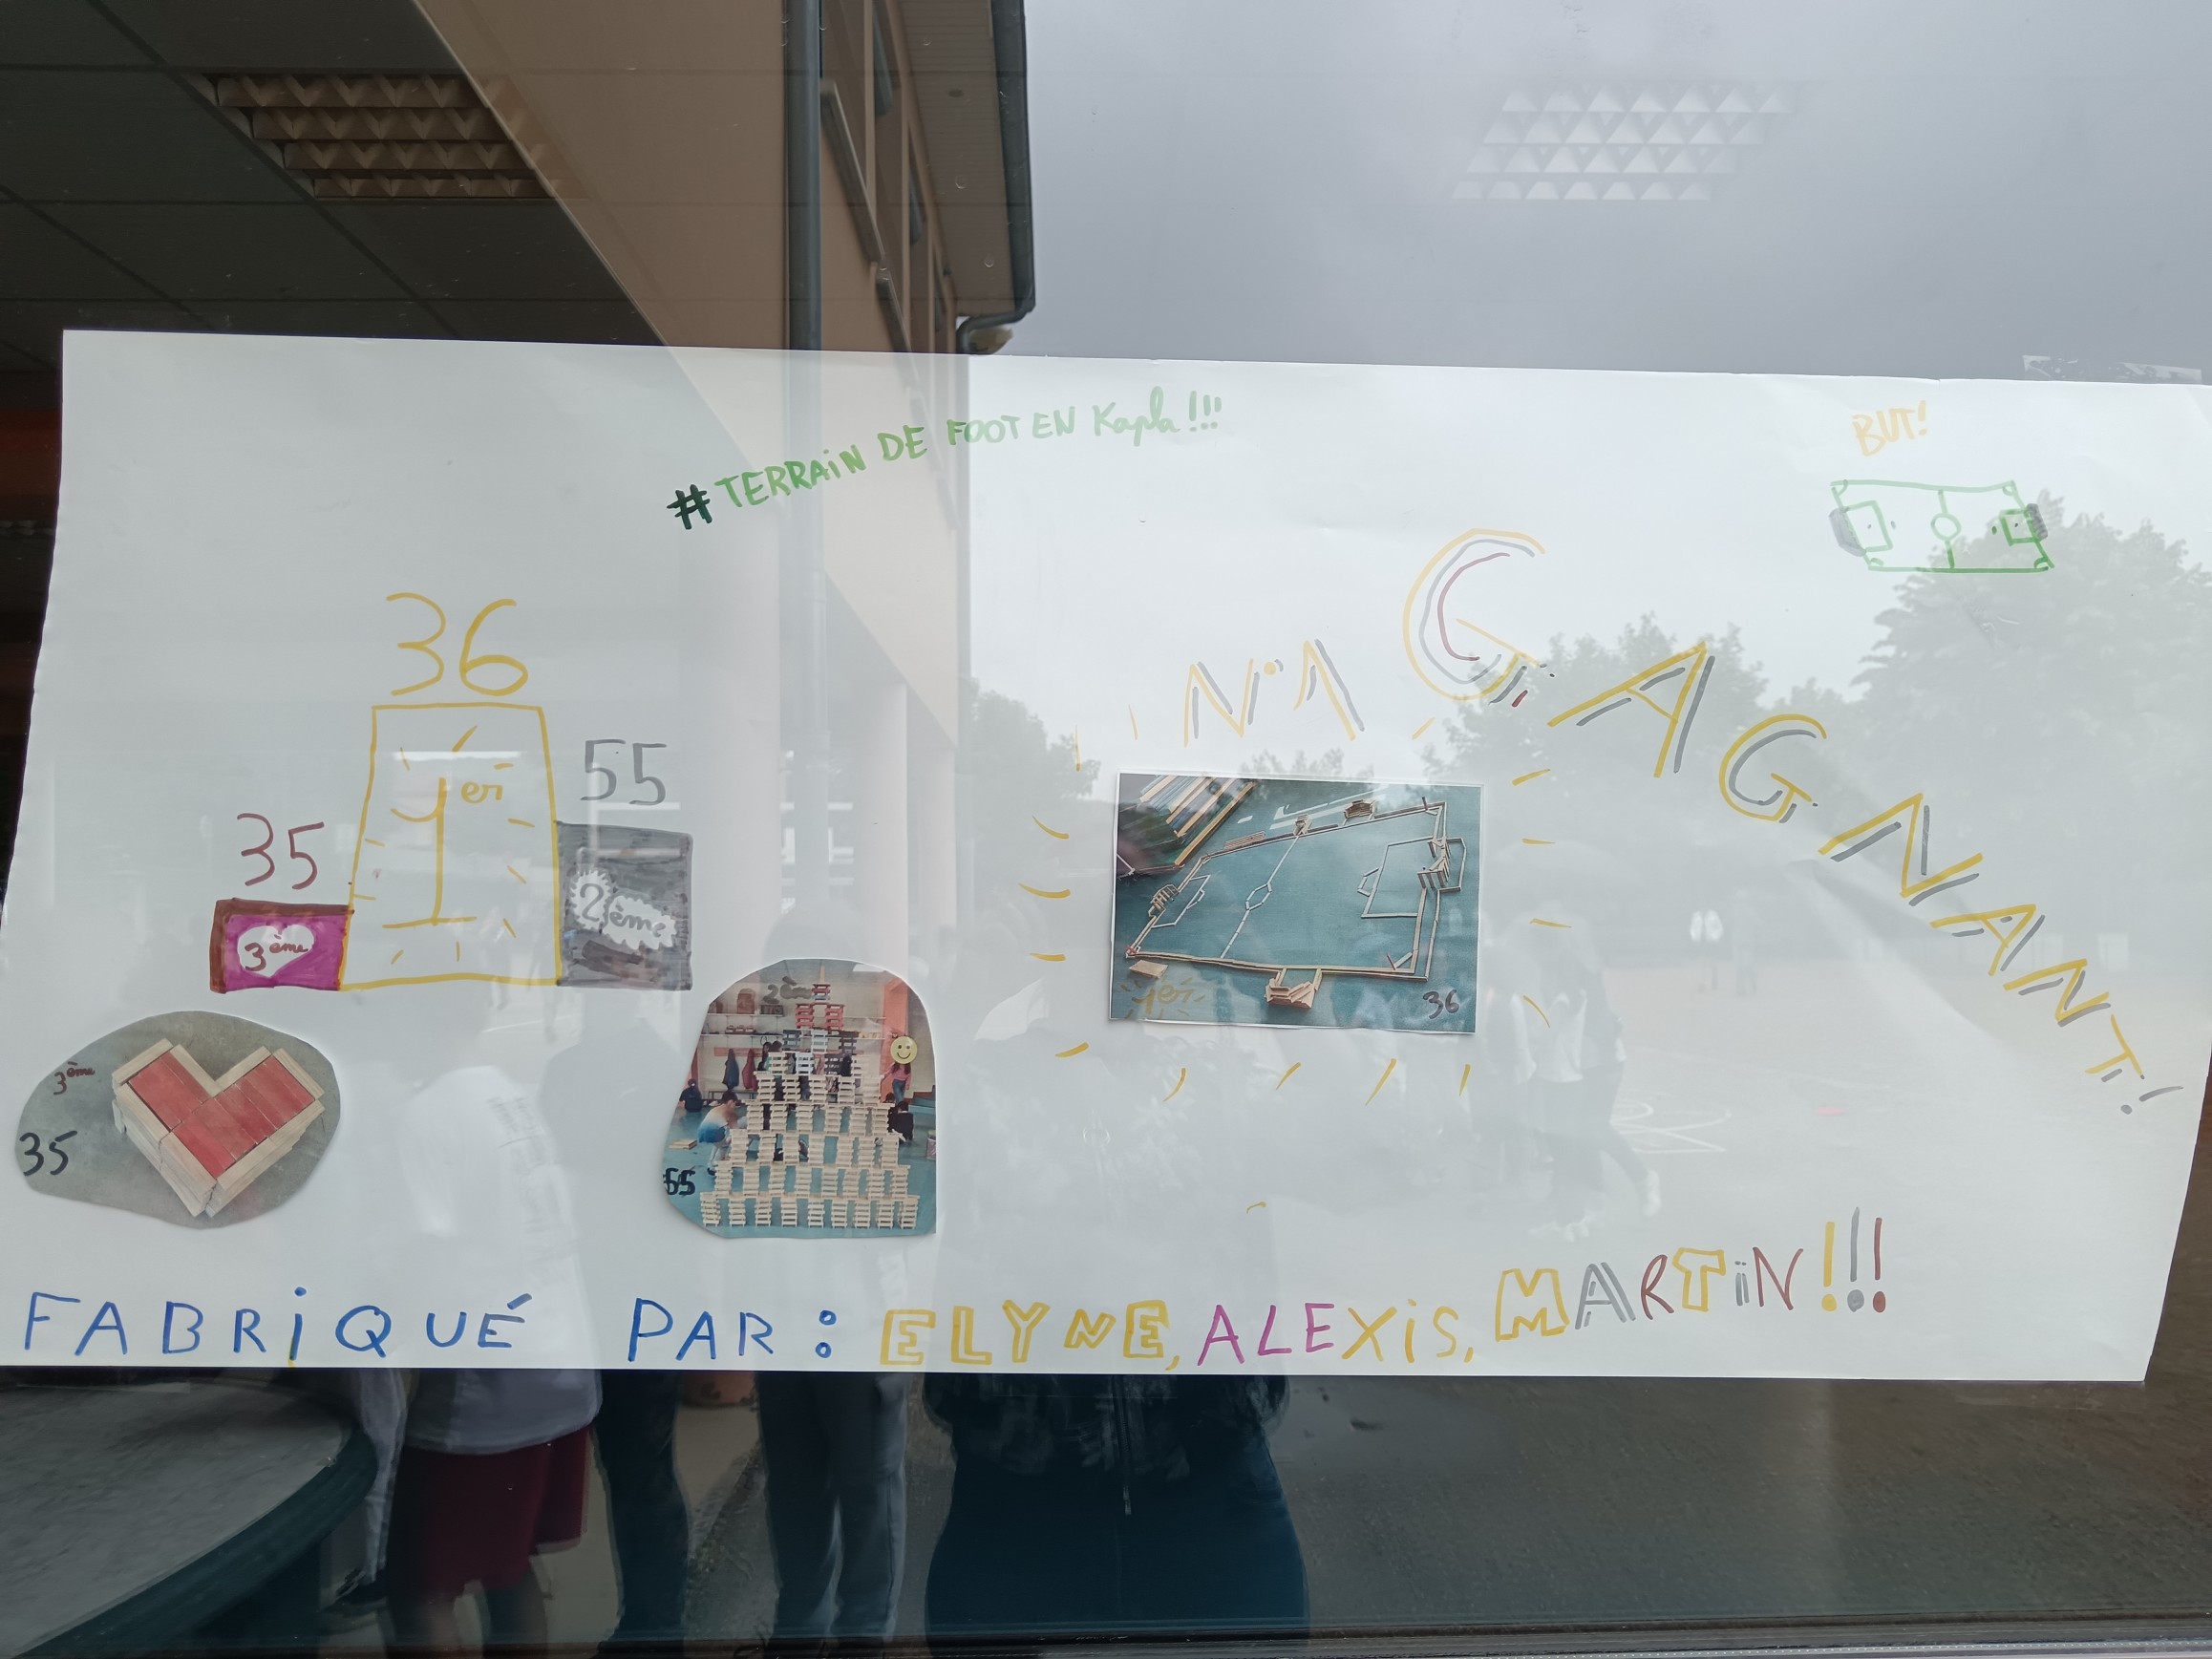 #TERRAiN DE FOOT EN Kapla!!!
BUT!
36
1er
55
2ème
35
3ème
N°1 GAGNANT!
1er
36
2ème
55
3ème
35
FABRiQUÉ PAR: ELYNE, ALEXiS, MARTiN!!!